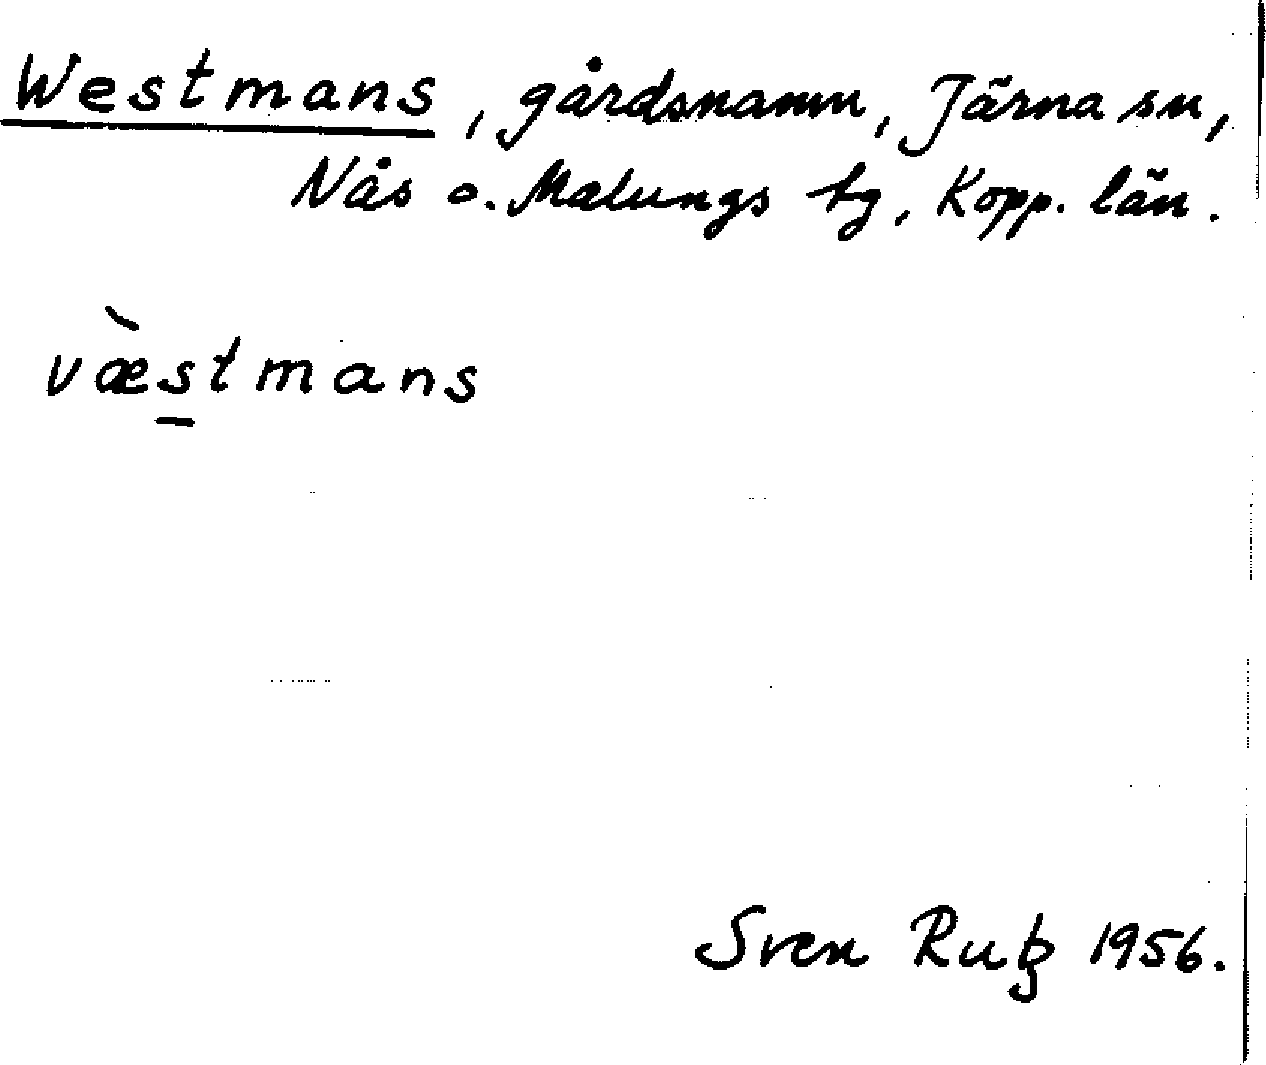 Westmans, gårdsnamn, Järna sn,
Nås o. Malungs tg, Kopp. län.
væ̀s̱tmans
Sven Rutz 1956.